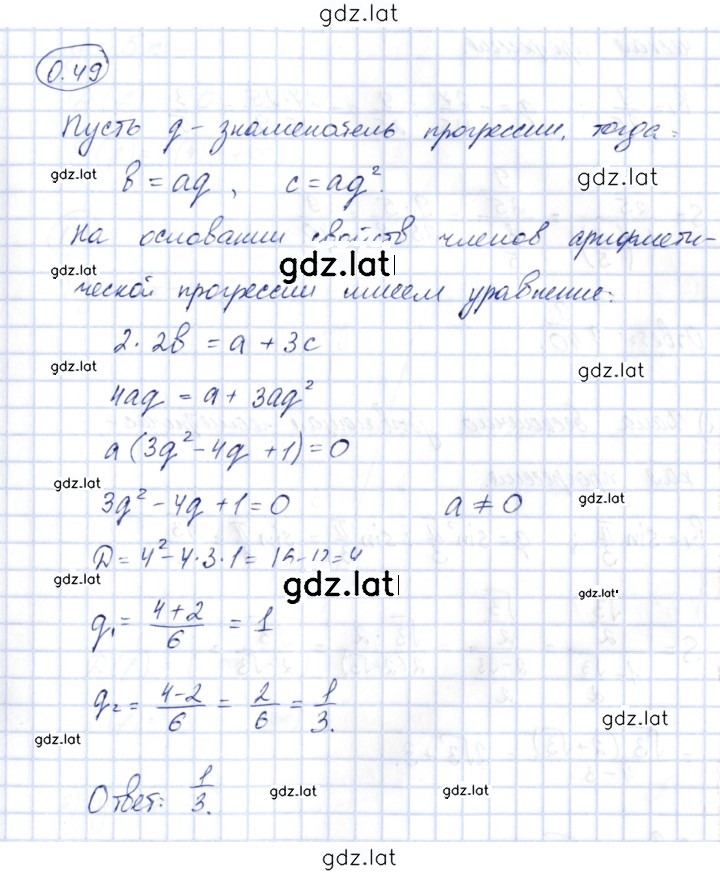 gdz.lat
0.49
Пусть q - знаменатель прогрессии, тогда:
gdz.lat
b = aq, c = aq².
gdz.lat
На основании свойств членов арифмети-
gdz.lat
gdz.lat
ческой прогрессии имеем уравнение:
2·2b = a + 3c
gdz.lat
gdz.lat
4aq = a + 3aq²
a(3q² - 4q + 1) = 0
gdz.lat
gdz.lat
3q² - 4q + 1 = 0 a ≠ 0
D = 4² - 4·3·1 = 16-12=4
gdz.lat
gdz.lat
gdz.lat
q₁ = (4+2)/6 = 1
q₂ = (4-2)/6 = 2/6 = 1/3.
gdz.lat
gdz.lat
Ответ: 1/3.
gdz.lat
gdz.lat
gdz.lat